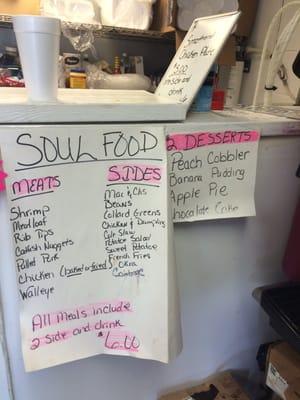 SOUL FOOD
MEATS
Shrimp
Meatloaf
Rib Tips
Catfish Nuggets
Pulled Pork
Chicken (baked or fried)
Walleye
SIDES
Mac & Chs
Beans
Collard Greens
Chicken & Dumplins
Cole Slaw
Potato Salad
Sweet Potatoe
French Fries
Okra
Cabbage
All Meals include
2 side and drink
$6.00
2 DESSERTS
Peach Cobbler
Banana Pudding
Apple Pie
Chocolate Cake
Chicken Plate
and drink